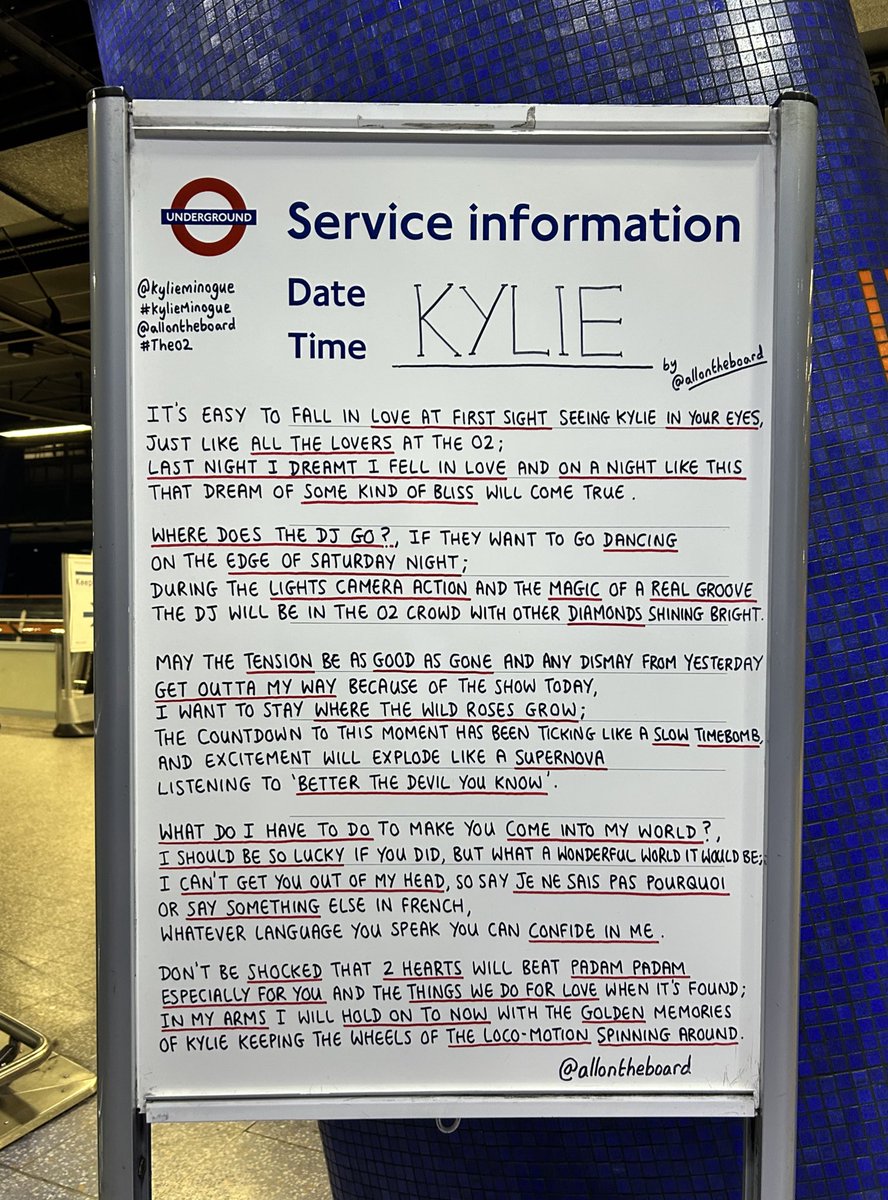 UNDERGROUND
Service information
@kylieminogue
#kylieMinogue
@allontheboard
#TheO2
Date
Time
KYLIE
by
@allontheboard
IT'S EASY TO FALL IN LOVE AT FIRST SIGHT SEEING KYLIE IN YOUR EYES,
JUST LIKE ALL THE LOVERS AT THE O2;
LAST NIGHT I DREAMT I FELL IN LOVE AND ON A NIGHT LIKE THIS
THAT DREAM OF SOME KIND OF BLISS WILL COME TRUE.
WHERE DOES THE DJ GO?, IF THEY WANT TO GO DANCING
ON THE EDGE OF SATURDAY NIGHT;
DURING THE LIGHTS CAMERA ACTION AND THE MAGIC OF A REAL GROOVE
THE DJ WILL BE IN THE O2 CROWD WITH OTHER DIAMONDS SHINING BRIGHT.
MAY THE TENSION BE AS GOOD AS GONE AND ANY DISMAY FROM YESTERDAY
GET OUTTA MY WAY BECAUSE OF THE SHOW TODAY,
I WANT TO STAY WHERE THE WILD ROSES GROW;
THE COUNTDOWN TO THIS MOMENT HAS BEEN TICKING LIKE A SLOW TIMEBOMB,
AND EXCITEMENT WILL EXPLODE LIKE A SUPERNOVA
LISTENING TO 'BETTER THE DEVIL YOU KNOW'.
WHAT DO I HAVE TO DO TO MAKE YOU COME INTO MY WORLD?,
I SHOULD BE SO LUCKY IF YOU DID, BUT WHAT A WONDERFUL WORLD IT WOULD BE;
I CAN'T GET YOU OUT OF MY HEAD, SO SAY JE NE SAIS PAS POURQUOI
OR SAY SOMETHING ELSE IN FRENCH,
WHATEVER LANGUAGE YOU SPEAK YOU CAN CONFIDE IN ME.
DON'T BE SHOCKED THAT 2 HEARTS WILL BEAT PADAM PADAM
ESPECIALLY FOR YOU AND THE THINGS WE DO FOR LOVE WHEN IT'S FOUND;
IN MY ARMS I WILL HOLD ON TO NOW WITH THE GOLDEN MEMORIES
OF KYLIE KEEPING THE WHEELS OF THE LOCO-MOTION SPINNING AROUND.
@allontheboard
Keep